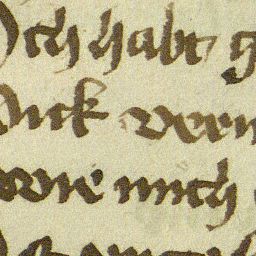 Ich habt g
dick vern
wie mich